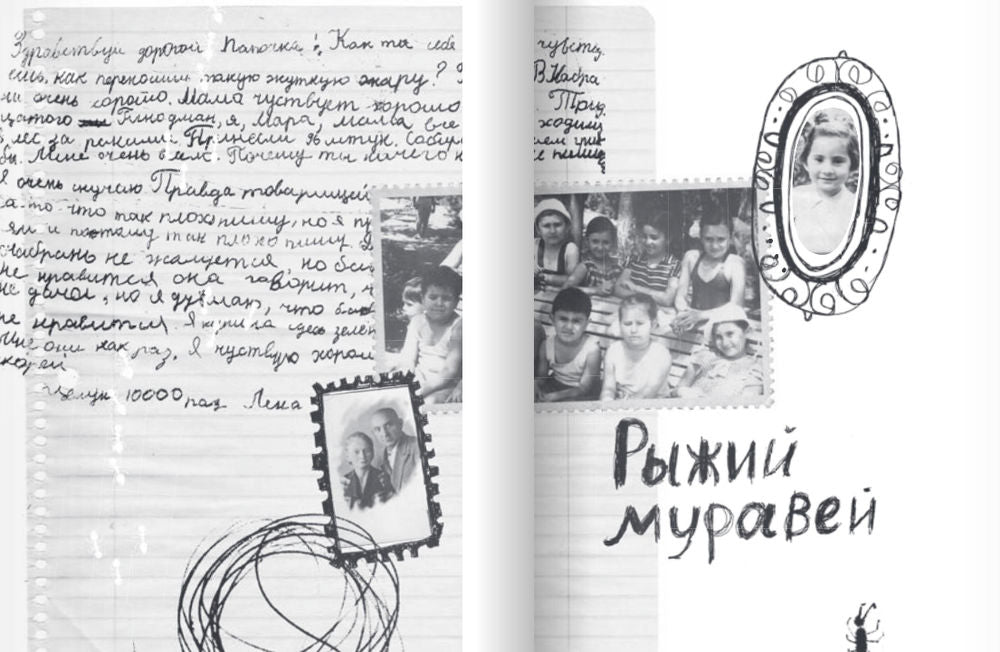 Здравствуй дорогой Папочка! Как ты себя чувству
ешь, как переносиш такую жуткую жару? В Кабра
ли очень хорошо. Мама чуствует хорошо. Трид
цатого я, Мара, мама все ходили
в лес за Принесли 98 штук. Собир
бы. Мне очень Почему ты ничего не пишеш
Я очень скучаю. Правда товарищей
за то что так плохо пишу, но я пр
ям и поэтому так плохо пишу.
не жалуется, но
не нравится она говорит,
не дачи, но я думаю, что
не нравится. Я купила здесь
они как раз. Я чуствую хорош
скорей
Целую 10000 раз Лена
Рыжий
муравей